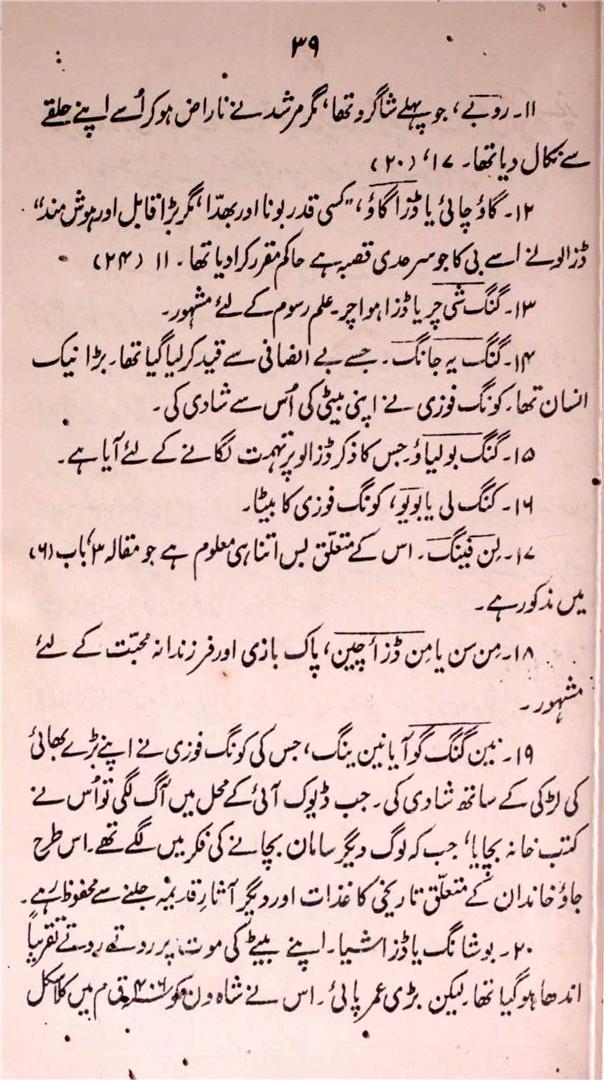 ۳۹
۱۱۔ روبے، جو پہلے شاگرد تھا، مگر مرشد نے ناراض ہو کر اُسے اپنے حلقے
سے نکال دیا تھا۔ ۱۷، (۲۰)
۱۲۔ گاؤ چائی یا ڈزا گاؤ، "کسی قدر بونا اور بھدّا، مگر بڑا قابل اور ہوش مند"
ڈزالو نے اسے بی کا جو سرحدی قصبہ ہے حاکم مقرر کرا دیا تھا۔ ۱۱ (۲۴)
۱۳۔ گنگ شی چر یا ڈزا ہوا چر۔ علم رسوم کے لئے مشہور۔
۱۴۔ گنگ یہ جانگ۔ جسے بے انصافی سے قید کر لیا گیا تھا۔ بڑا نیک
انسان تھا۔ کونگ فوزی نے اپنی بیٹی کی اُس سے شادی کی۔
۱۵۔ گنگ بولیاؤ، جس کا ذکر ڈزالو پر تہمت لگانے کے لئے آیا ہے۔
۱۶۔ کنگ لی یا بویو، کونگ فوزی کا بیٹا۔
۱۷۔ لِن فینگ۔ اس کے متعلّق بس اتنا ہی معلوم ہے جو مقالہ ۳، باب (۶)
میں مذکور ہے۔
۱۸۔ مِن سن یا مِن ڈزا چین، پاک بازی اور فرزندانہ محبّت کے لئے
مشہور۔
۱۹۔ نین گنگ گوآ یا نین ینگ، جس کی کونگ فوزی نے اپنے بڑے بھائی
کی لڑکی کے ساتھ شادی کی۔ جب ڈیوک آئی کے محل میں آگ لگی تو اُس نے
کتب خانہ بچایا، جب کہ لوگ دیگر سامان بچانے کی فکر میں لگے تھے۔ اس طرح
جاؤ خاندان کے متعلّق تاریخی کاغذات اور دیگر آثارِ قدیمہ جلنے سے محفوظ رہے۔
۲۰۔ بوشانگ یا ڈزاشیا۔ اپنے بیٹے کی موت پر روتے روتے تقریباً
اندھا ہو گیا تھا۔ لیکن بڑی عمر پائی۔ اس نے شاہ ون کو ۴۰۶ ق م میں کلاسکل